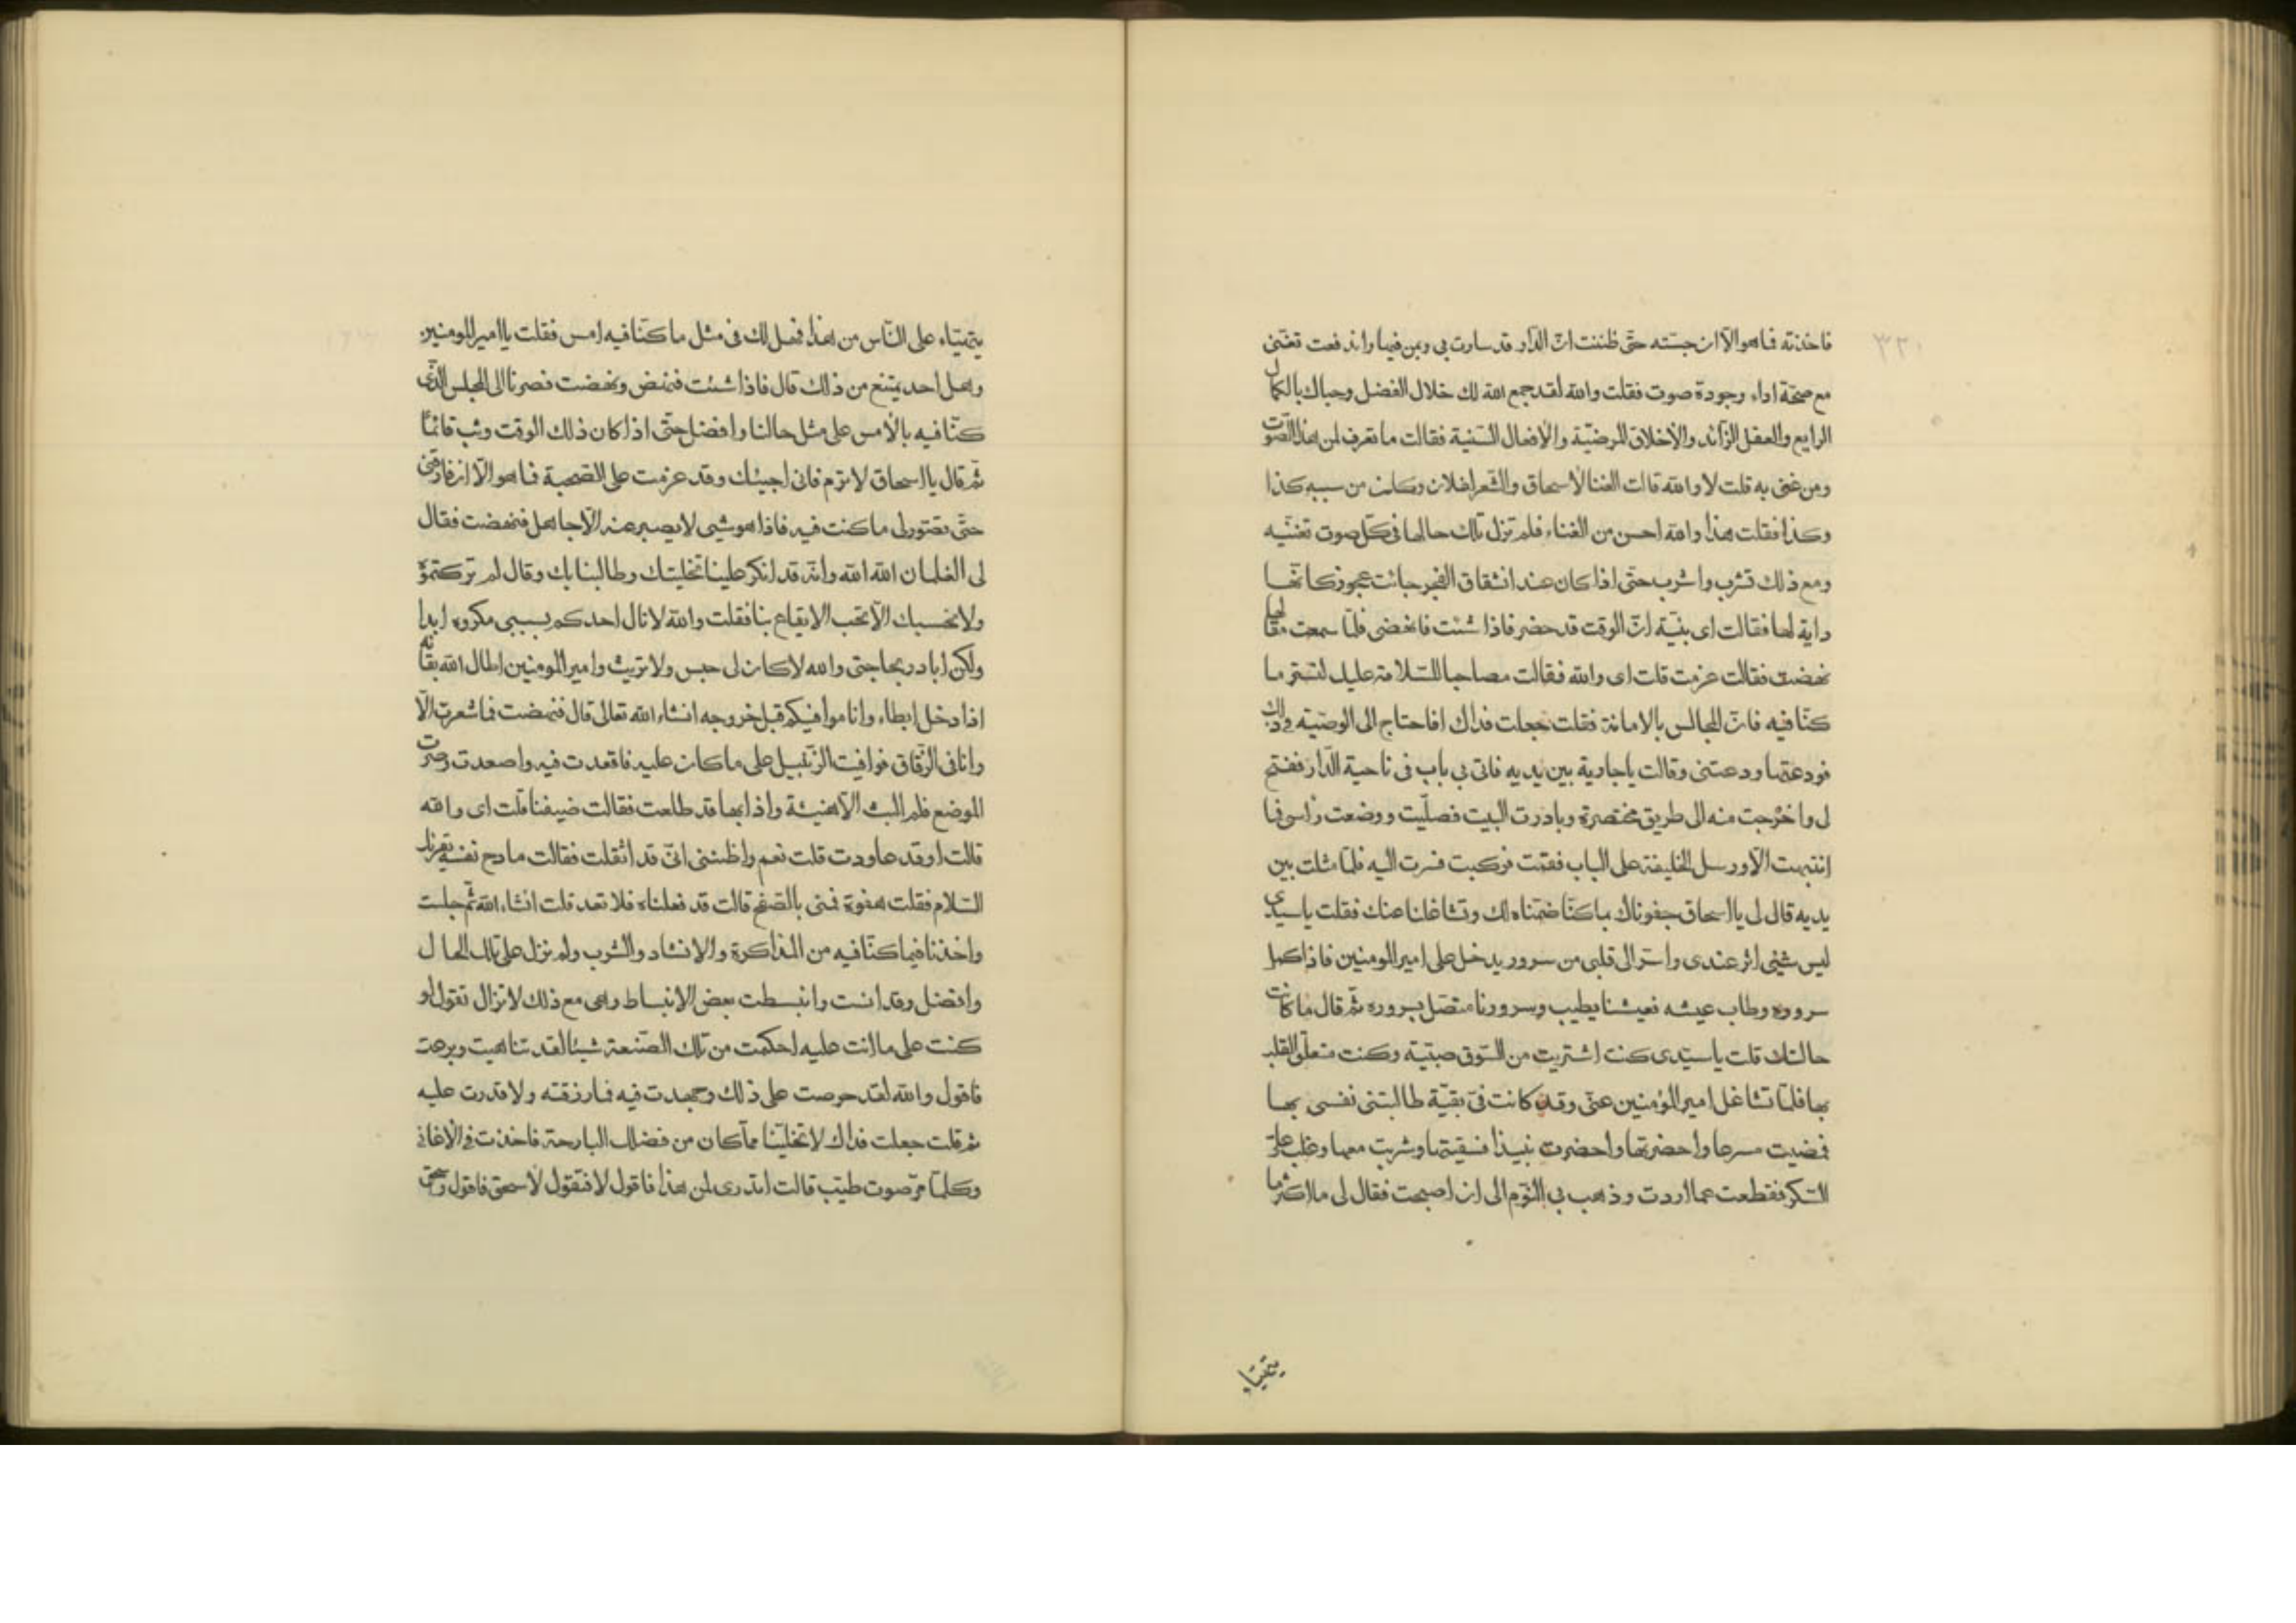 ٣٢٠
فاخذته فما هو الّا ان جسّته حتّى ظننت انّ الدّار قد سارت بى وبمن فيها واندفعت تغنّى
مع صحّة اداء وجودة صوت فقلت والله لقد جمع الله لك خلال الفضل وحباك بالكمال
الرايع والعقل الزّائد والأخلاق المرضيّة والأفعال السّنية فقالت ما تعرف لمن هذا الصّوت
ومن غنى به قلت لا والله قالت الغنا لأسحاق والشّعر لفلان وكان من سببه كذا
وكذا فقلت هذا والله احسن من الغناء فلم تزل تلك حالها فى كلّ صوت تغنّيه
ومع ذلك تشرب واشرب حتّى اذا كان عند انشقاق الفجر جائت عجوز كانّها
داية لها فقالت اى بنيّة انّ الوقت قد حضر فاذا شئت فانهضى فلمّا سمعت مقالها
نهضت فقالت عزمت قلت اى والله فقالت مصاحبا للسّلامة عليك لتستر ما
كنّا فيه فانّ المجالس بالامانة فقلت جعلت فداك افاحتاج الى الوصيّة فى ذلك
فودعتها ودعتنى وقالت ياجارية بين يديه فاتى بى باب فى ناحية الدّار ففتح
لى واخرجت منه الى طريق مختصرة وبادرت البيت فصلّيت ووضعت راسى فما
انتبهت الّا ورسل الخليفة على الباب فقمت فركبت فسرت اليه فلمّا مثلت بين
يديه قال لى يا اسحاق جفوناك بما كنّا ضمنّاه لك وتشاغلنا عنك فقلت ياسيدى
ليس شيئى اثر عندى واسرّ الى قلبى من سرور يدخل على امير المومنين فاذا كمل
سروره وطاب عيشه فعيشنا يطيب وسرورنا متصل بسروره ثمّ قال ما كانت
حالتك قلت ياسيّدى كنت اشتريت من السّوق صبيّة وكنت متعلّق القلب
بها فلمّا تشاغل امير المؤمنين عنّى وقد كانت فىّ بقيّة طالبتنى نفسى بها
فمضيت مسرعا واحضرتها واحضرت نبيذا فسقيتها وشربت معها وغلب علىّ
السّكر فقطعت عما اردت وذهب بى النّوم الى ان اصبحت فقال لى ما اكثر ما
يتهيّاء
يتهيّاء على النّاس من هذا فهل لك فى مثل ما كنّا فيه امس فقلت ياامير المومنين
وهل احد يمتنع من ذلك قال فاذا شئت فنهض ونهضت فصرنا الى المجلس الّذى
كنّا فيه بالأمس على مثل حالنا وافضل حتّى اذا كان ذلك الوقت وثب قائمًا
ثمّ قال يا اسحاق لا ترم فانى اجيئك وقد عزمت على الصّحبة فما هو الّا ان فارقنى
حتّى تصّور لى ما كنت فيه فاذا هو شيى لا يصبر عنه الّا جاهل فنهضت فقال
لى الغلمان الله الله وانّه قد انكر علينا تخليتك وطالبنا بك وقال لم تركتموه
ولا نحسبك الّا تحب الايقاع بنا فقلت والله لا نال احدكم بسببى مكروه ابدا
ولكن ابادر بحاجتى والله لا كان لى حبس ولا تريث وامير المومنين اطال الله بقائه
اذا دخل ابطاء وانا موافيكم قبل خروجه انشاء الله تعالى قال فنهضت فما شعرت الّا
وانا فى الزّقاق فوافيت الزّنبيل على ما كان عليه فاقعدت فيه واصعدت وصرت
الموضع فلم البث الّا هنيئة واذا بها قد طلعت فقالت ضيفنا قلت اى والله
قالت اوقد عاودت قلت نعم واظننى انّى قد اثقلت فقالت مادح نفسه يقرئك
السّلام فقلت هفوة فمنى بالصّفح قالت قد فعلناه فلا تعد قلت انشاء الله ثمّ جلست
واخذنا فيما كنّا فيه من المذاكرة والانشاد والشرب ولم نزل على تلك الحال
وافضل وقد انست وانبسطت بعض الانبساط وهى مع ذلك لا تزال تقول لو
كنت على ما انت عليه احكمت من تلك الصّنعة شيئا لقد تناهيت وبرعت
فاقول والله لقد حرصت على ذلك وجهدت فيه فما رزقته ولا قدرت عليه
ثم قلت جعلت فداك لا تخليّنا ممّا كان من فضلك البارحة فاخذت فى الأغانى
وكلّما مرّ صوت طيّب قالت اتدرى لمن هذا فاقول لا فتقول لأسحق فاقول واسحق